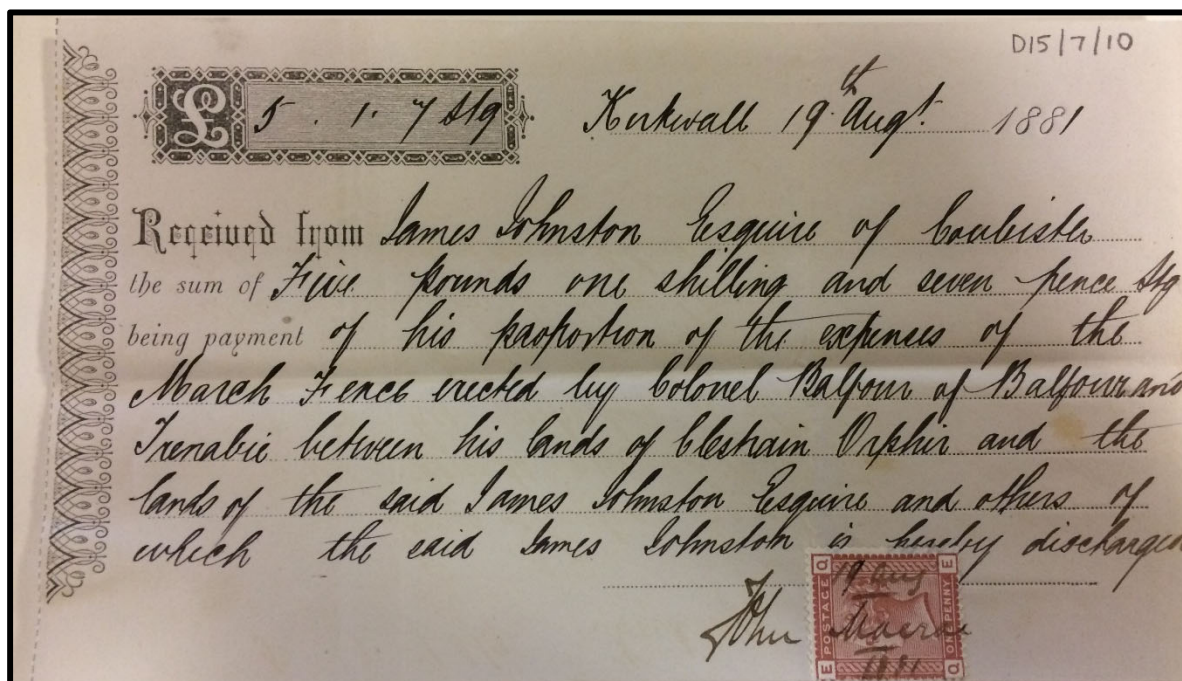 D15/7/10
£ 5 . 1 . 7 Stg Kirkwall 19th Augt. 1881
Received from James Johnston Esquire of Coubister
the sum of Five pounds one shilling and seven pence Stg
being payment of his proportion of the expenses of the
March Fence erected by Colonel Balfour of Balfour and
Trenabie between his lands of Clestrain Orphir and the
lands of the said James Johnston Esquire and others of
which the said James Johnston is hereby discharged
John Macrae
19 Aug
1881
Q E
POSTAGE ONE PENNY
E Q